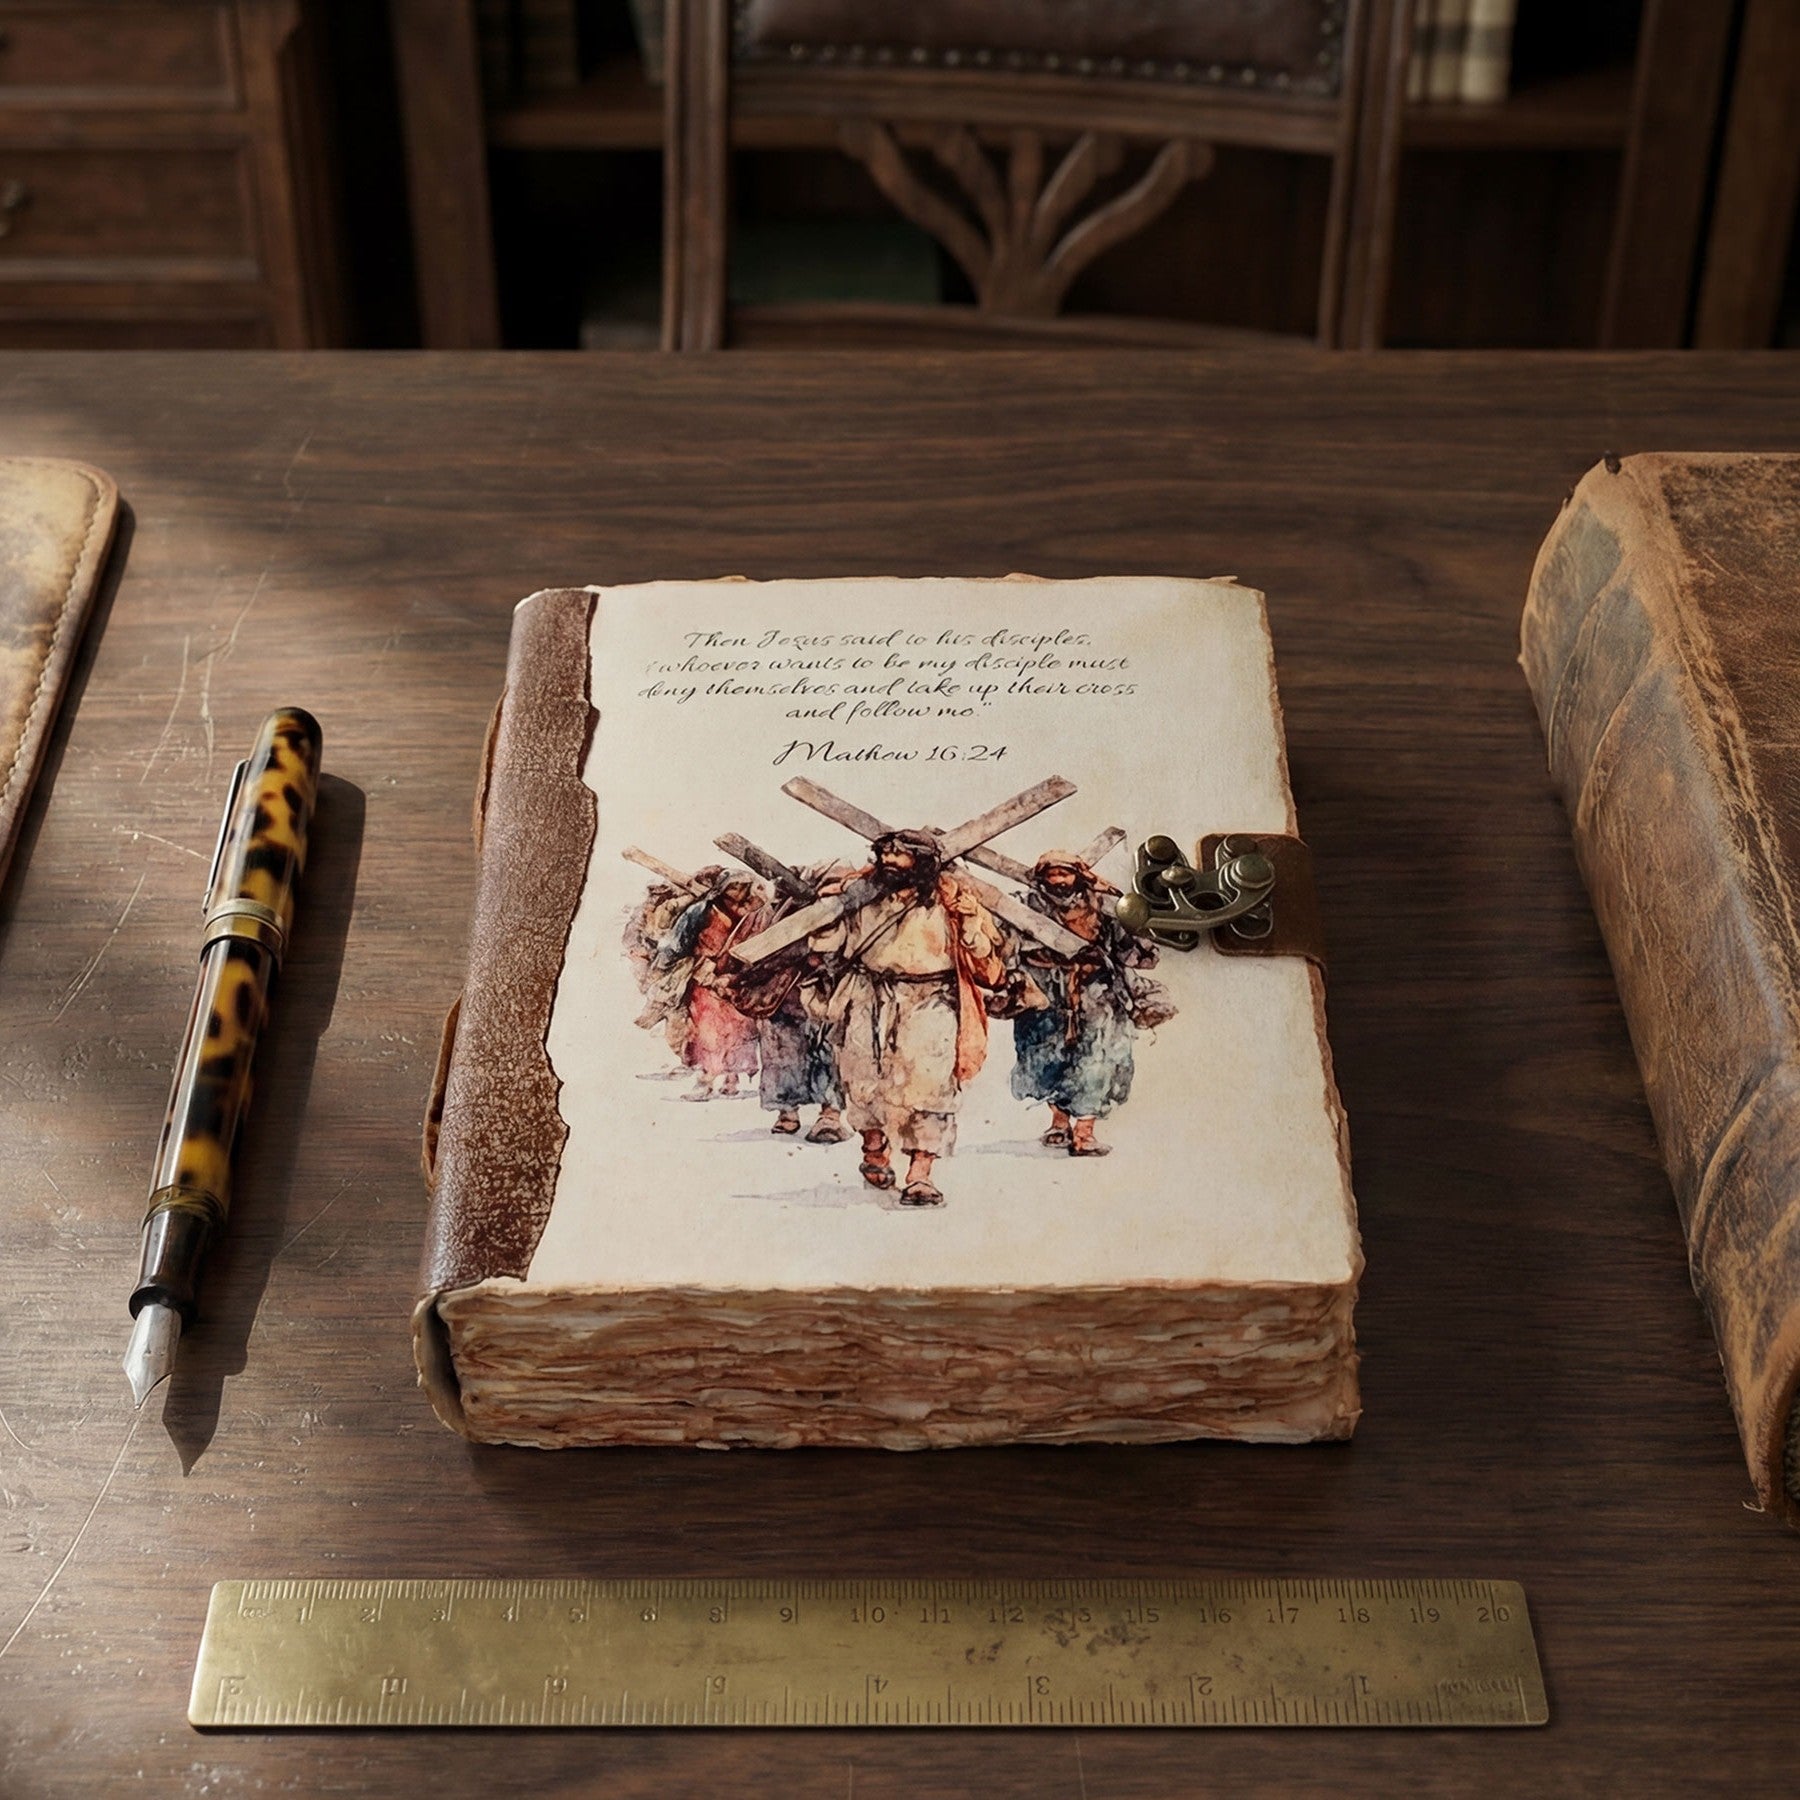 Then Jesus said to his disciples,
"whoever wants to be my disciple must
deny themselves and take up their cross
and follow me."
Mathew 16:24
1 2 3 4 5 6 8 9 10 11 12 13 15 16 17 18 19 20
6 5 4 3 2 1